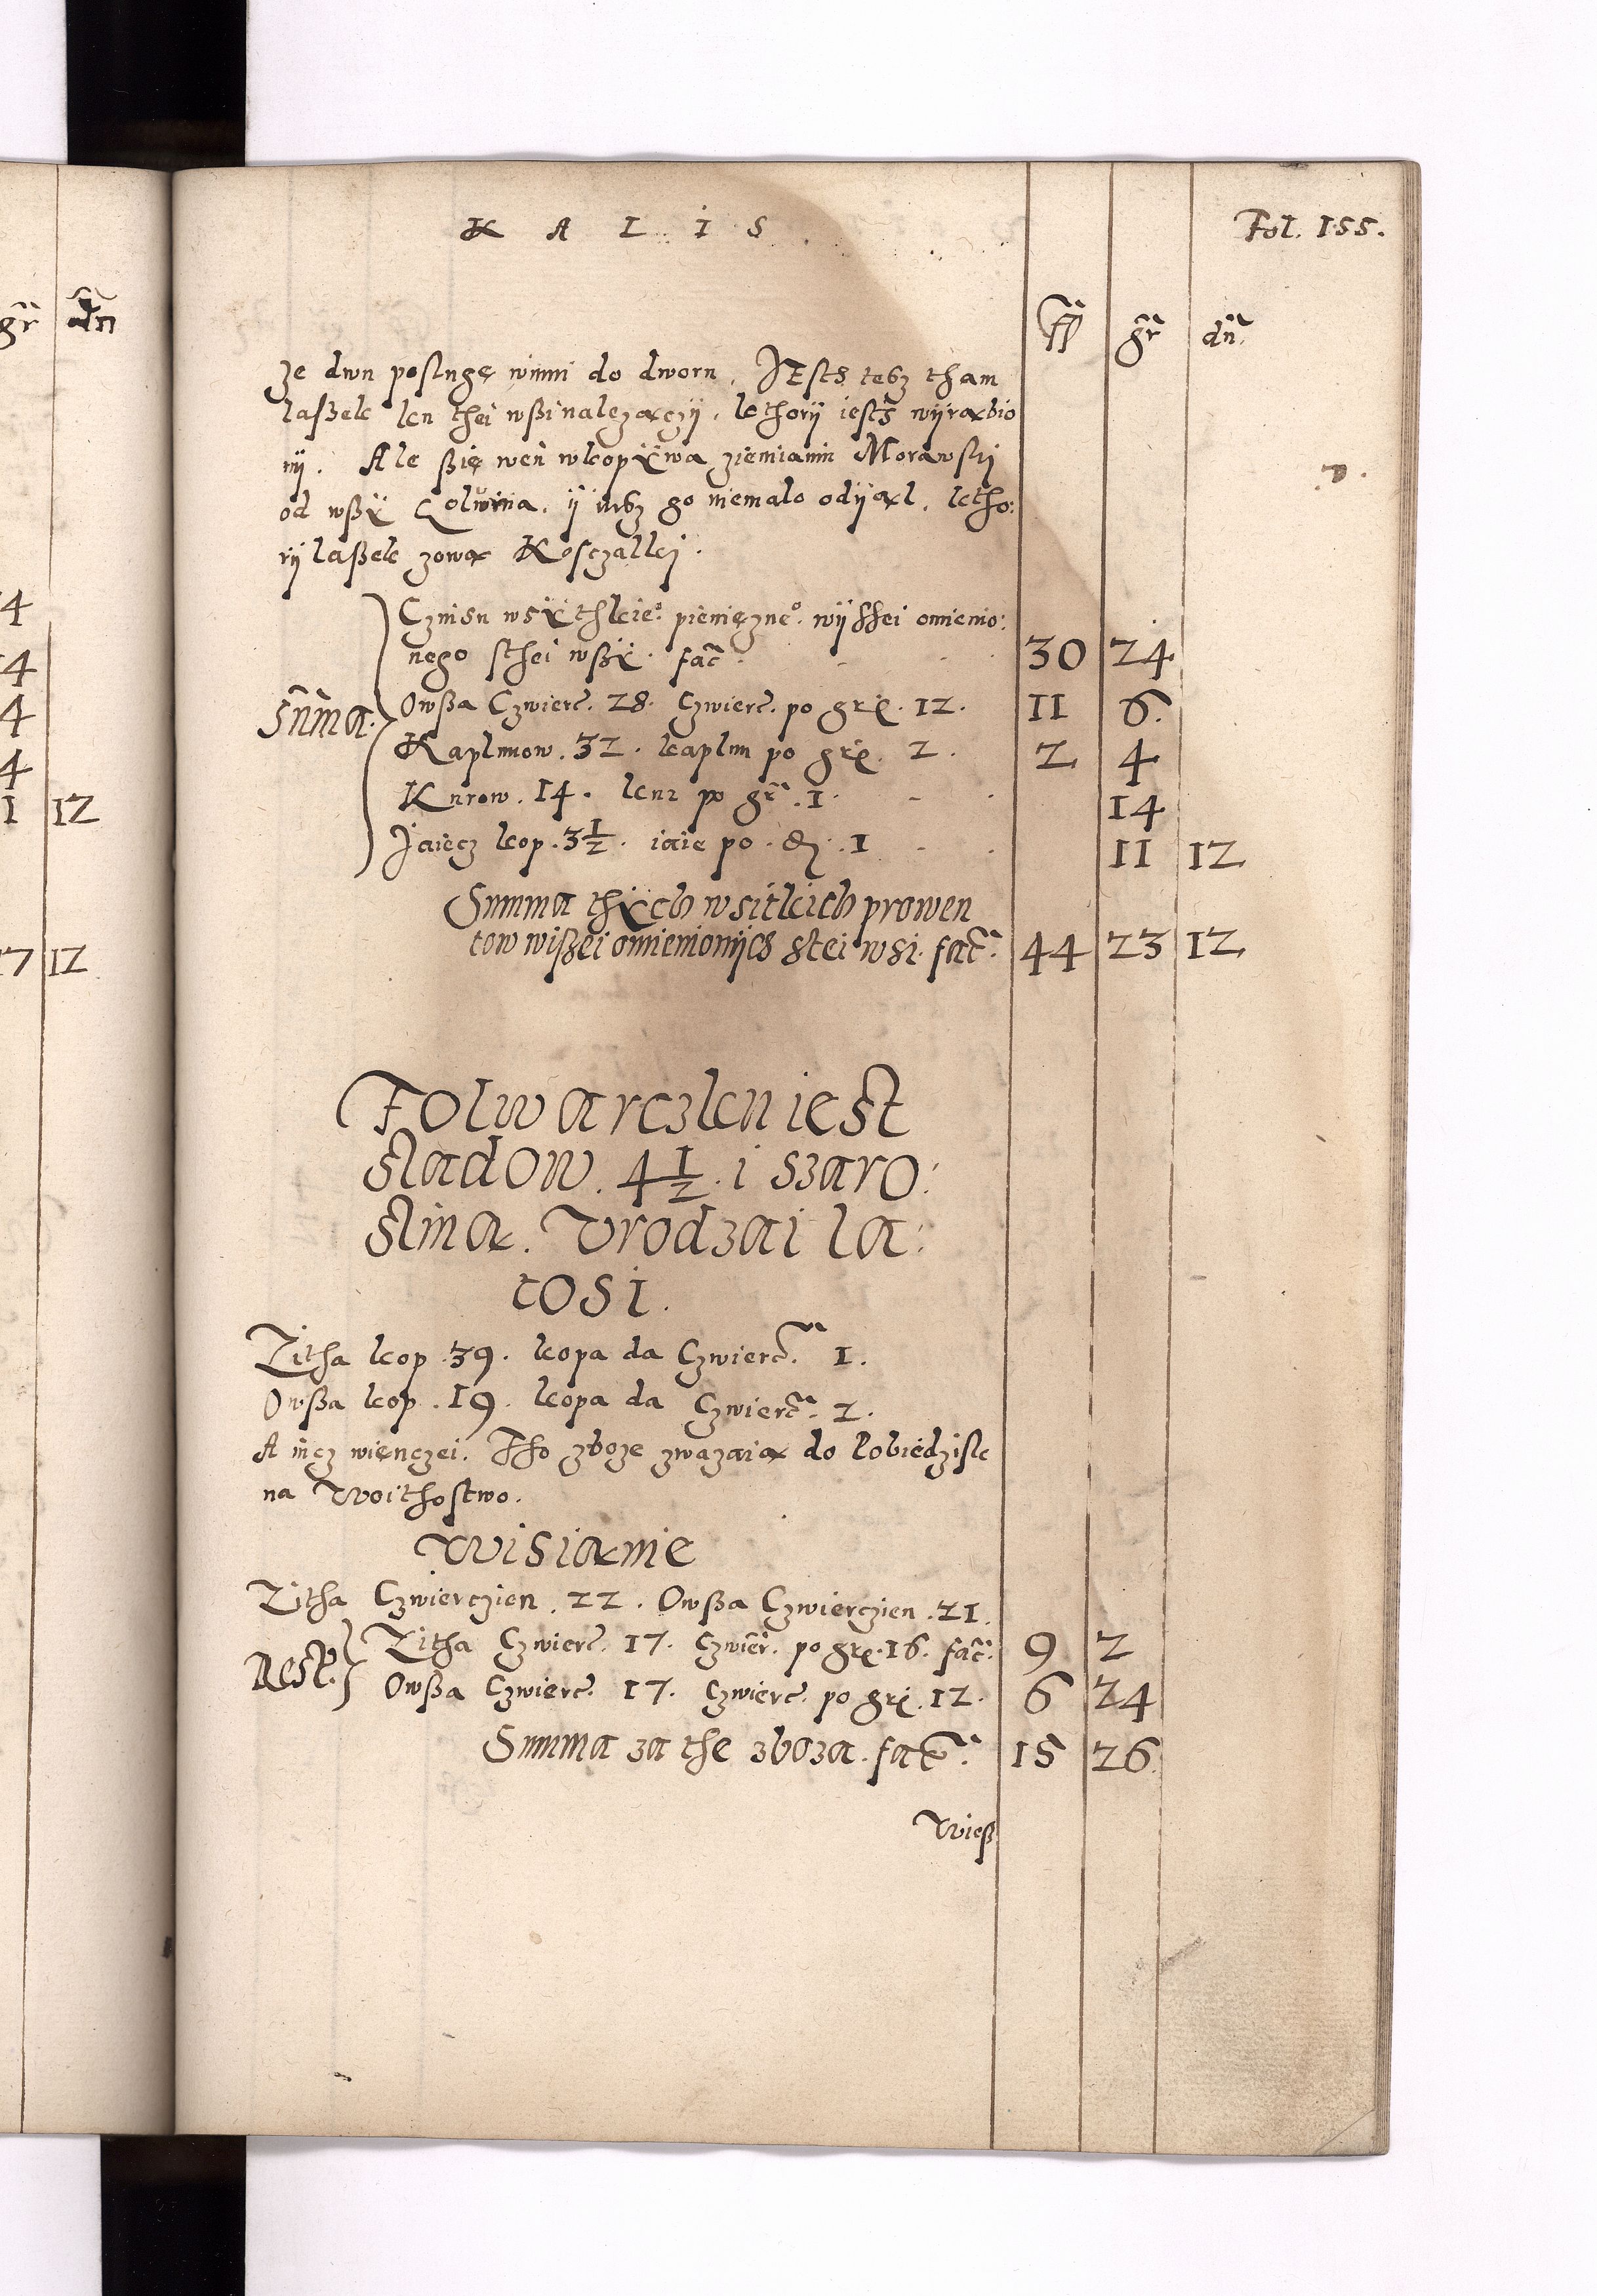 K A L I S
Fol. 155.
ff gr dn
że dwu posługę winni do dworu. JEsth tesz tham
laßek ku thei wßi nalezączÿ. kthorÿ iesth wÿrąbio
nÿ. Ale ßię weń wkopÿwa ziemianin Morawski
od wßÿ Colwina. ÿ iusz go niemało odÿął. ktho:
rÿ laßek zową Kosczalki.
Czinsu wsÿthkieº pieniężneº wÿssei omienio:
nego sthei wßÿ. fac̃ 30 24
Sum̃a.
Owßa Czwierc. 28. Czwierc. po grx. 12. 11 6.
Kapłunow. 32. kapłun po grx. 2. 2 4
Kurow. 14. kur po gr̃. 1. 14
Jaiecz kop. 3 1/2. iaie po. d. 1 11 12
Summa thÿch wsitkich prowen
tow wißei omienionÿch stei wsi. fac̃ 44 23 12
Folwarczku iest
sladow. 4 1/2. i szaro:
slina. Urodzai la:
tosi.
Zitha kop. 39. kopa da Czwierc̃. 1.
Owßa kop. 19. kopa da Czwierc̃. 2.
A nicz wienczei. Tho zboze zwazaią do Pobiedzisk
na Woithostwo.
Wisianie
Zitha Czwierczien. 22. Owßa Czwierczien. 21.
Rest.
Zitha Czwierc. 17. Czwier. po grx. 16. fac̃. 9 2
Owßa Czwierc. 17. Czwierc. po grx. 12. 6 24
Summa za the zboza. fac̃. 15 26.
Wieß
gr dn
4
4
4
4
1 12
7 12